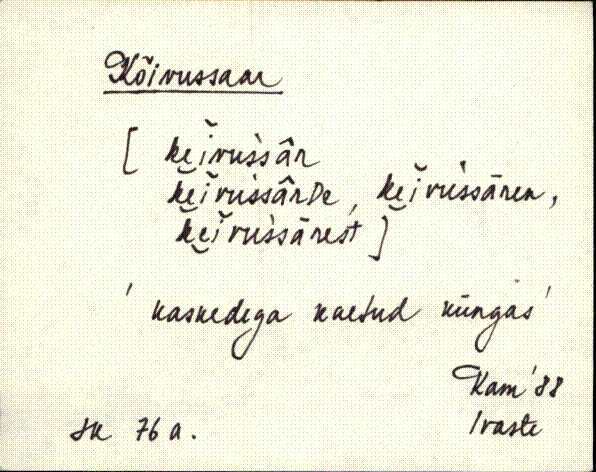 Kõivussaar
[ ke̮i̮vussâr
ke̮i̮vussârDe, ke̮i̮vussāren,
ke̮i̮vussārest ]
'kaskedega kaetud küngas'
Kam '88
Ivaste
su 76 a.